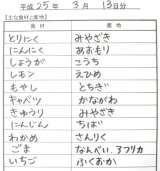 平成 25年 3月 13日分
【主な食材と産地】
食材 産地
とりにく みやざき
にんにく あおもり
しょうが こうち
レモン えひめ
もやし とちぎ
キャベツ かながわ
きゅうり みやざき
にんじん ちば
わかめ さんりく
ごま なんべい、アフリカ
いちご ふくおか